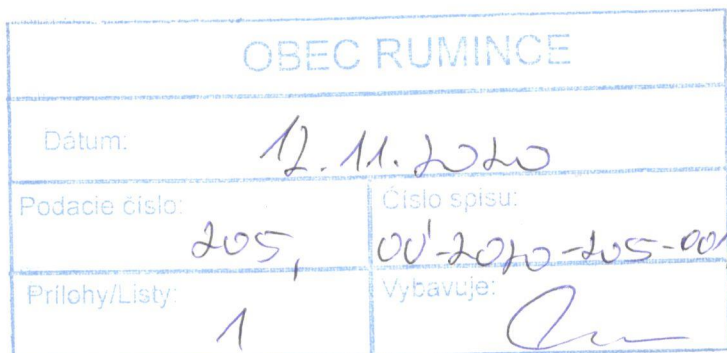 OBEC RUMINCE
Dátum: 12.11.2020
Podacie číslo: 205,
Číslo spisu: OÚ-2020-205-001
Prílohy/Listy: 1
Vybavuje: